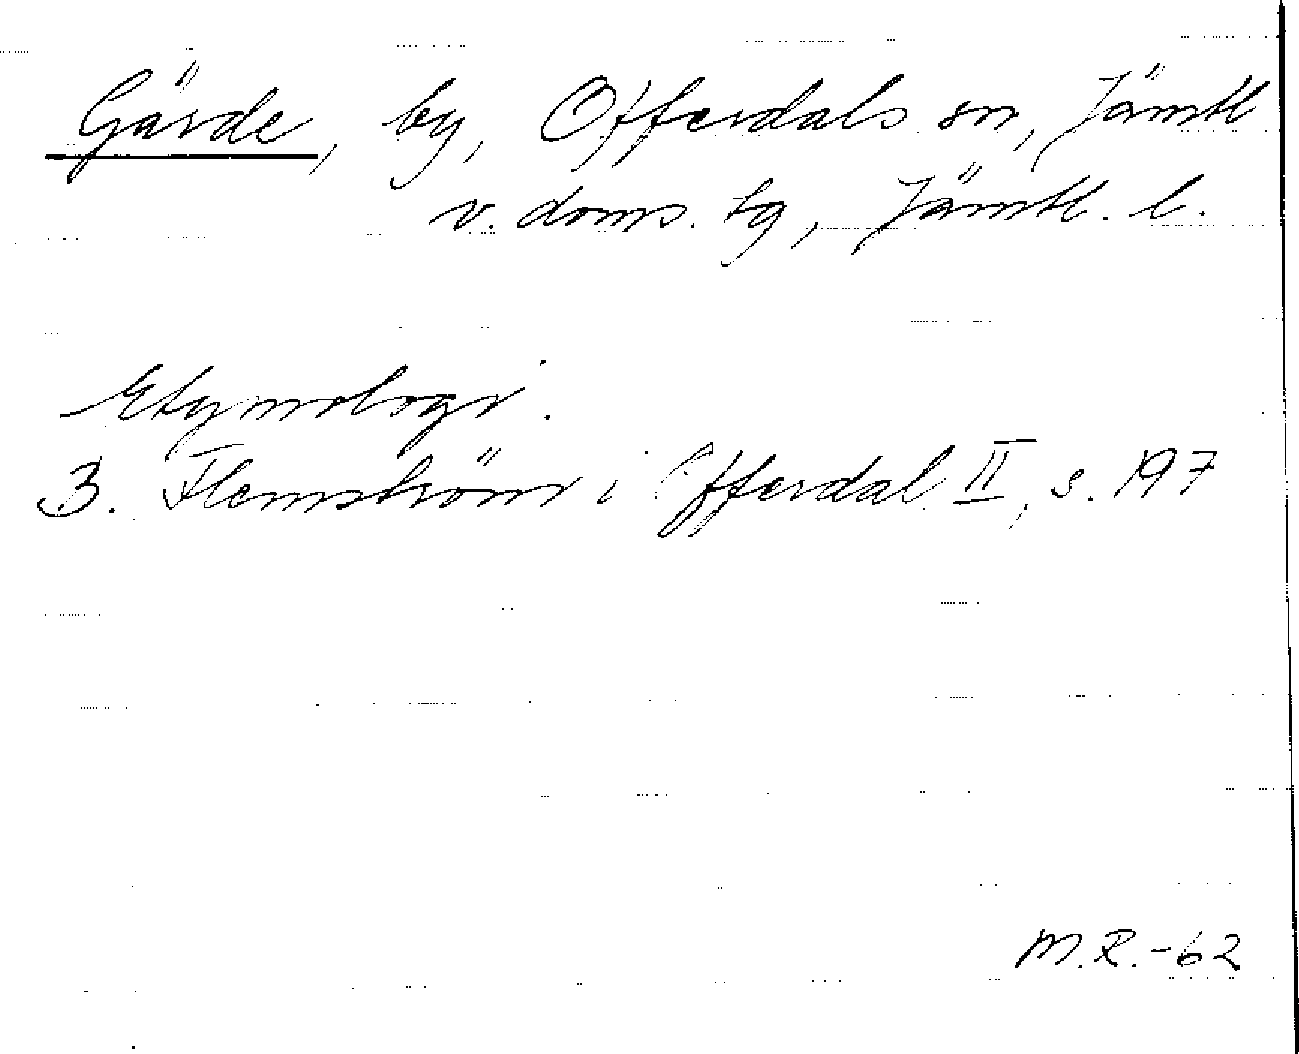 Gärde, by, Offerdals sn, Jämtl
v. doms. tg, Jämtl. l.
Etymologi.
B. Flemström i Offerdal II, s. 197
M.R.-62